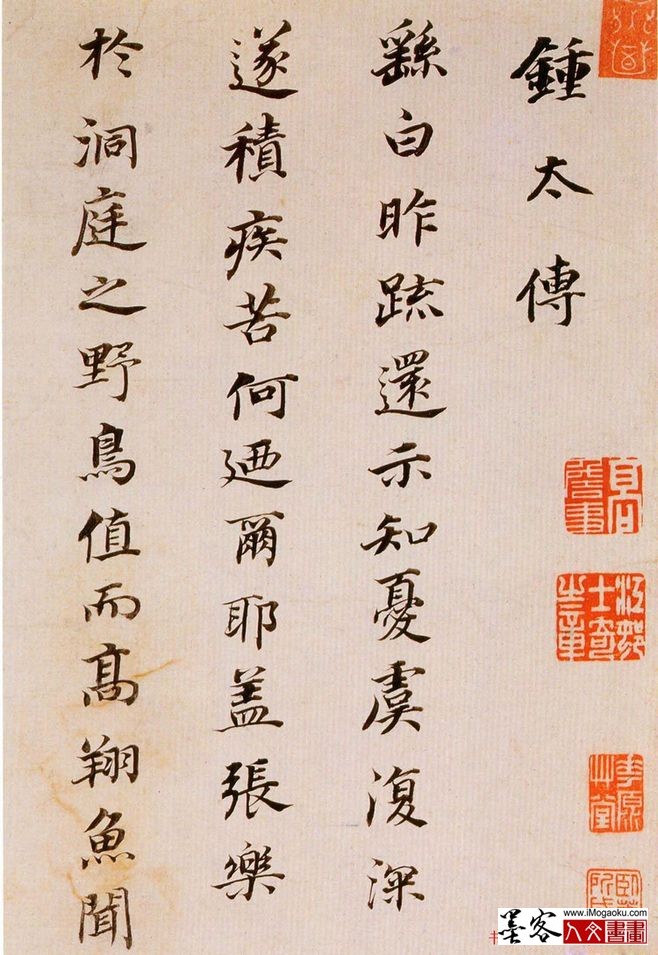 鍾太傅
繇白昨疏還示知憂虞復深
遂積疾苦何迺爾耶蓋張樂
於洞庭之野鳥值而高翔魚聞
江邨士奇之章
墨客
www.iMogaoku.com
人文書畫